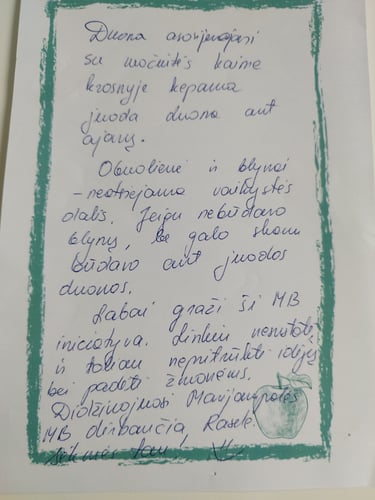 Duona asocijuojasi
su močiutės kaime
krosnyje kepama
juoda duona ant
ajerų.
Obuolienė ir blynai
– neatsiejama vaikystės
dalis. Jeigu nebūdavo
blynų, be galo skanu
būdavo ant juodos
duonos.
Labai graži ši MB
iniciatyva. Linkiu nesustoti
ir toliau nepritrūkti idėjų
bei padėti žmonėms.
Didžiuojuosi Marijampolės
MB dirbančia Rasele.
Sėkmės tau!